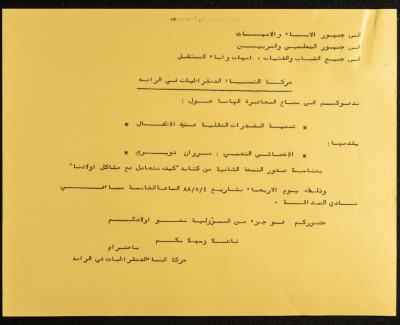 الى جمهور الآباء والأمهات
الى جمهور المعلمين والمربين
الى جميع الشباب والفتيات ، امهات وآباء المستقبل
حركة النساء الديمقراطيات في الرامه
تدعوكم الى سماع المحاضرة الهامة حول :
* تنمية القدرات العقلية عند الأطفال *
يقدمها :
* الاخصائي النفسي : مروان دويري *
بمناسبة صدور النسخة الثانية من كتابه "كيف نتعامل مع مشاكل اولادنا"
وذلك يوم الاربعاء بتاريخ ٨٨/٥/٤ الساعة الخامسة مساء في
نادي الصداقة .
حضوركم هو جزء من المسؤولية نحو اولادكم
فأهلا وسهلا بكم
باحترام
حركة النساء الديمقراطيات في الرامه